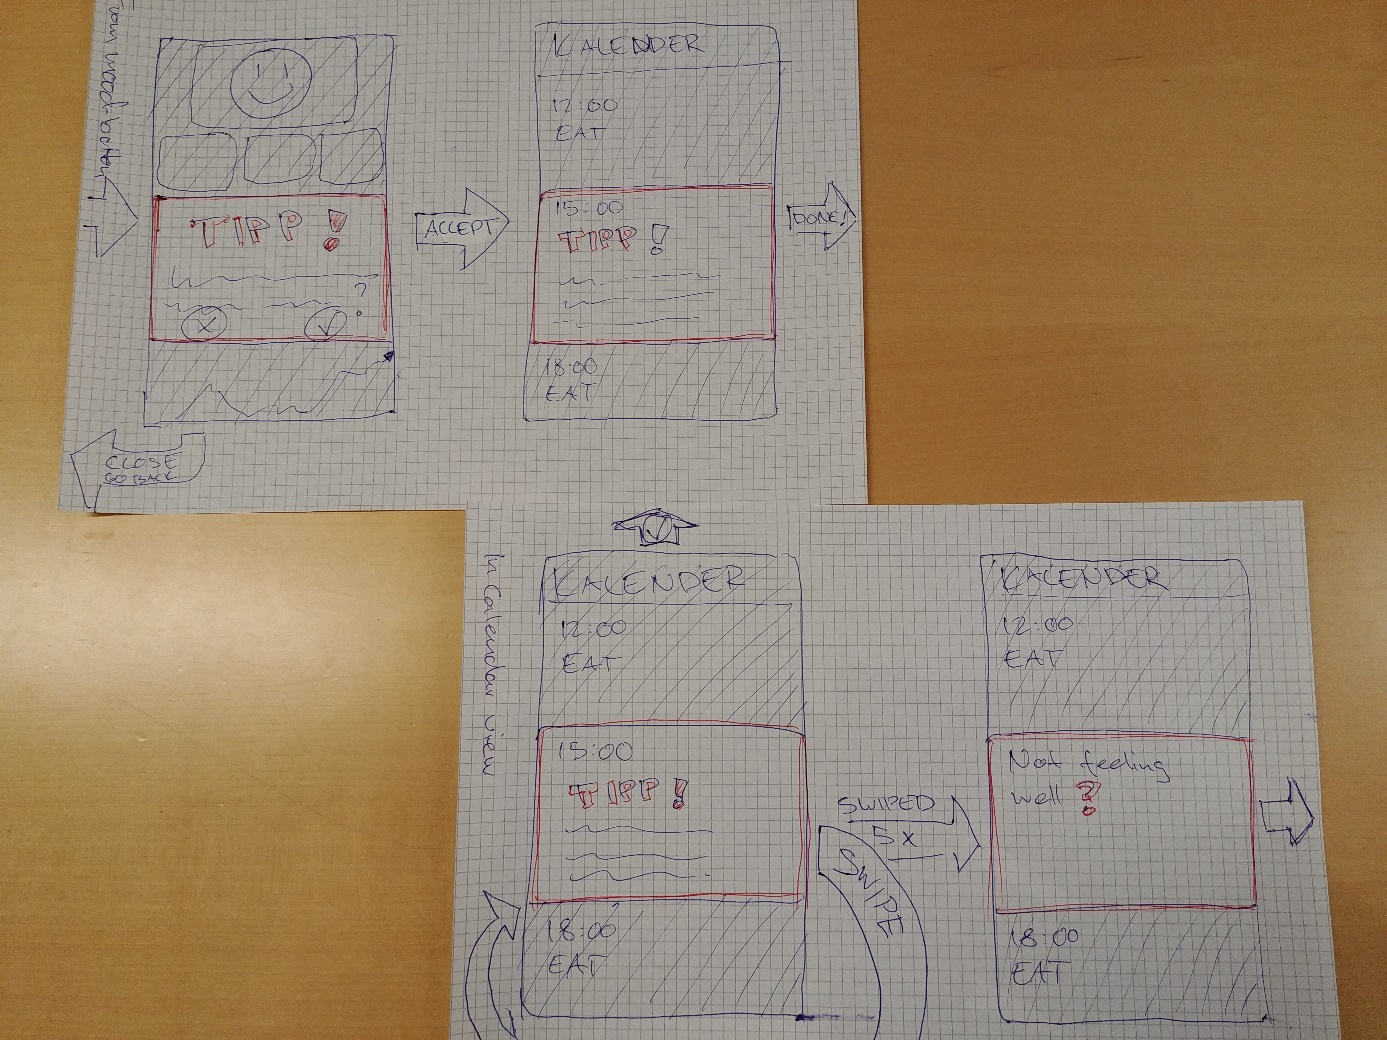 TIPP!
?
ACCEPT
KALENDER
12:00
EAT
15:00
TIPP!
18:00
EAT
DONE!
CLOSE
GO BACK
In Calendar view
KALENDER
12:00
EAT
15:00
TIPP!
18:00
EAT
SWIPED
5x
SWIPE
KALENDER
12:00
EAT
Not feeling
well ?
18:00
EAT